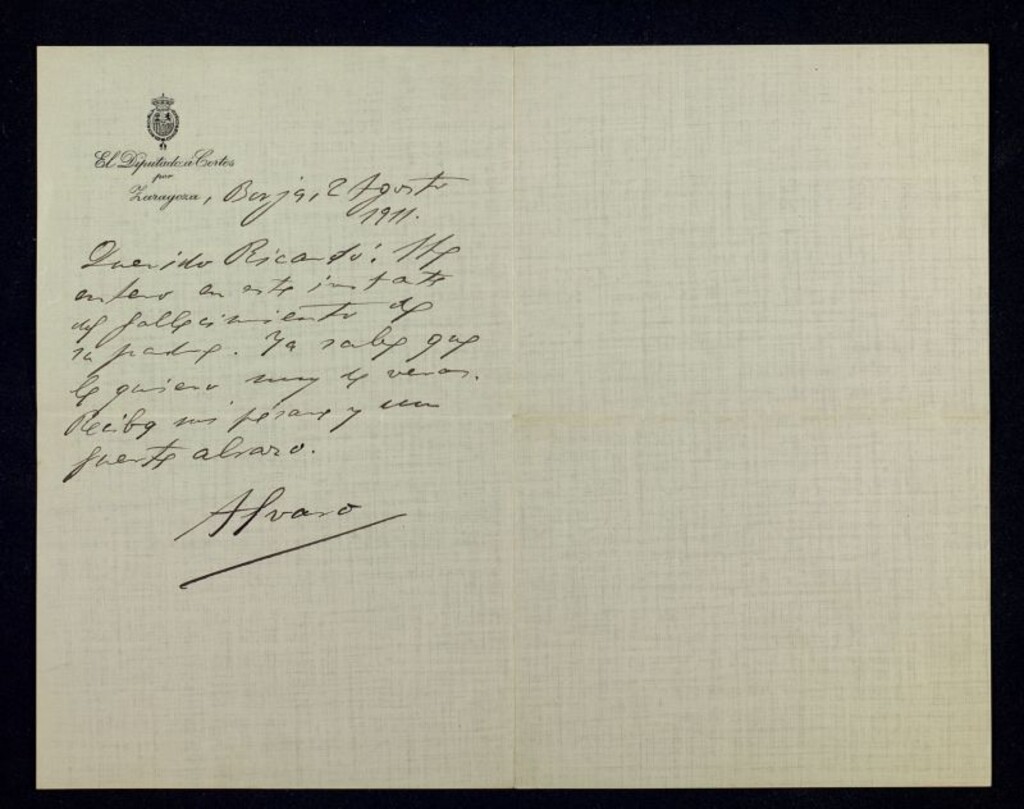 El Diputado á Cortes
por
Zaragoza, Borja, 2 Agosto
1911.
Querido Ricardo: Me
entero en este instante
del fallecimiento de
su padre. Ya sabe que
le quiero muy de veras.
Reciba mi pésame y un
fuerte abrazo.
Alvaro